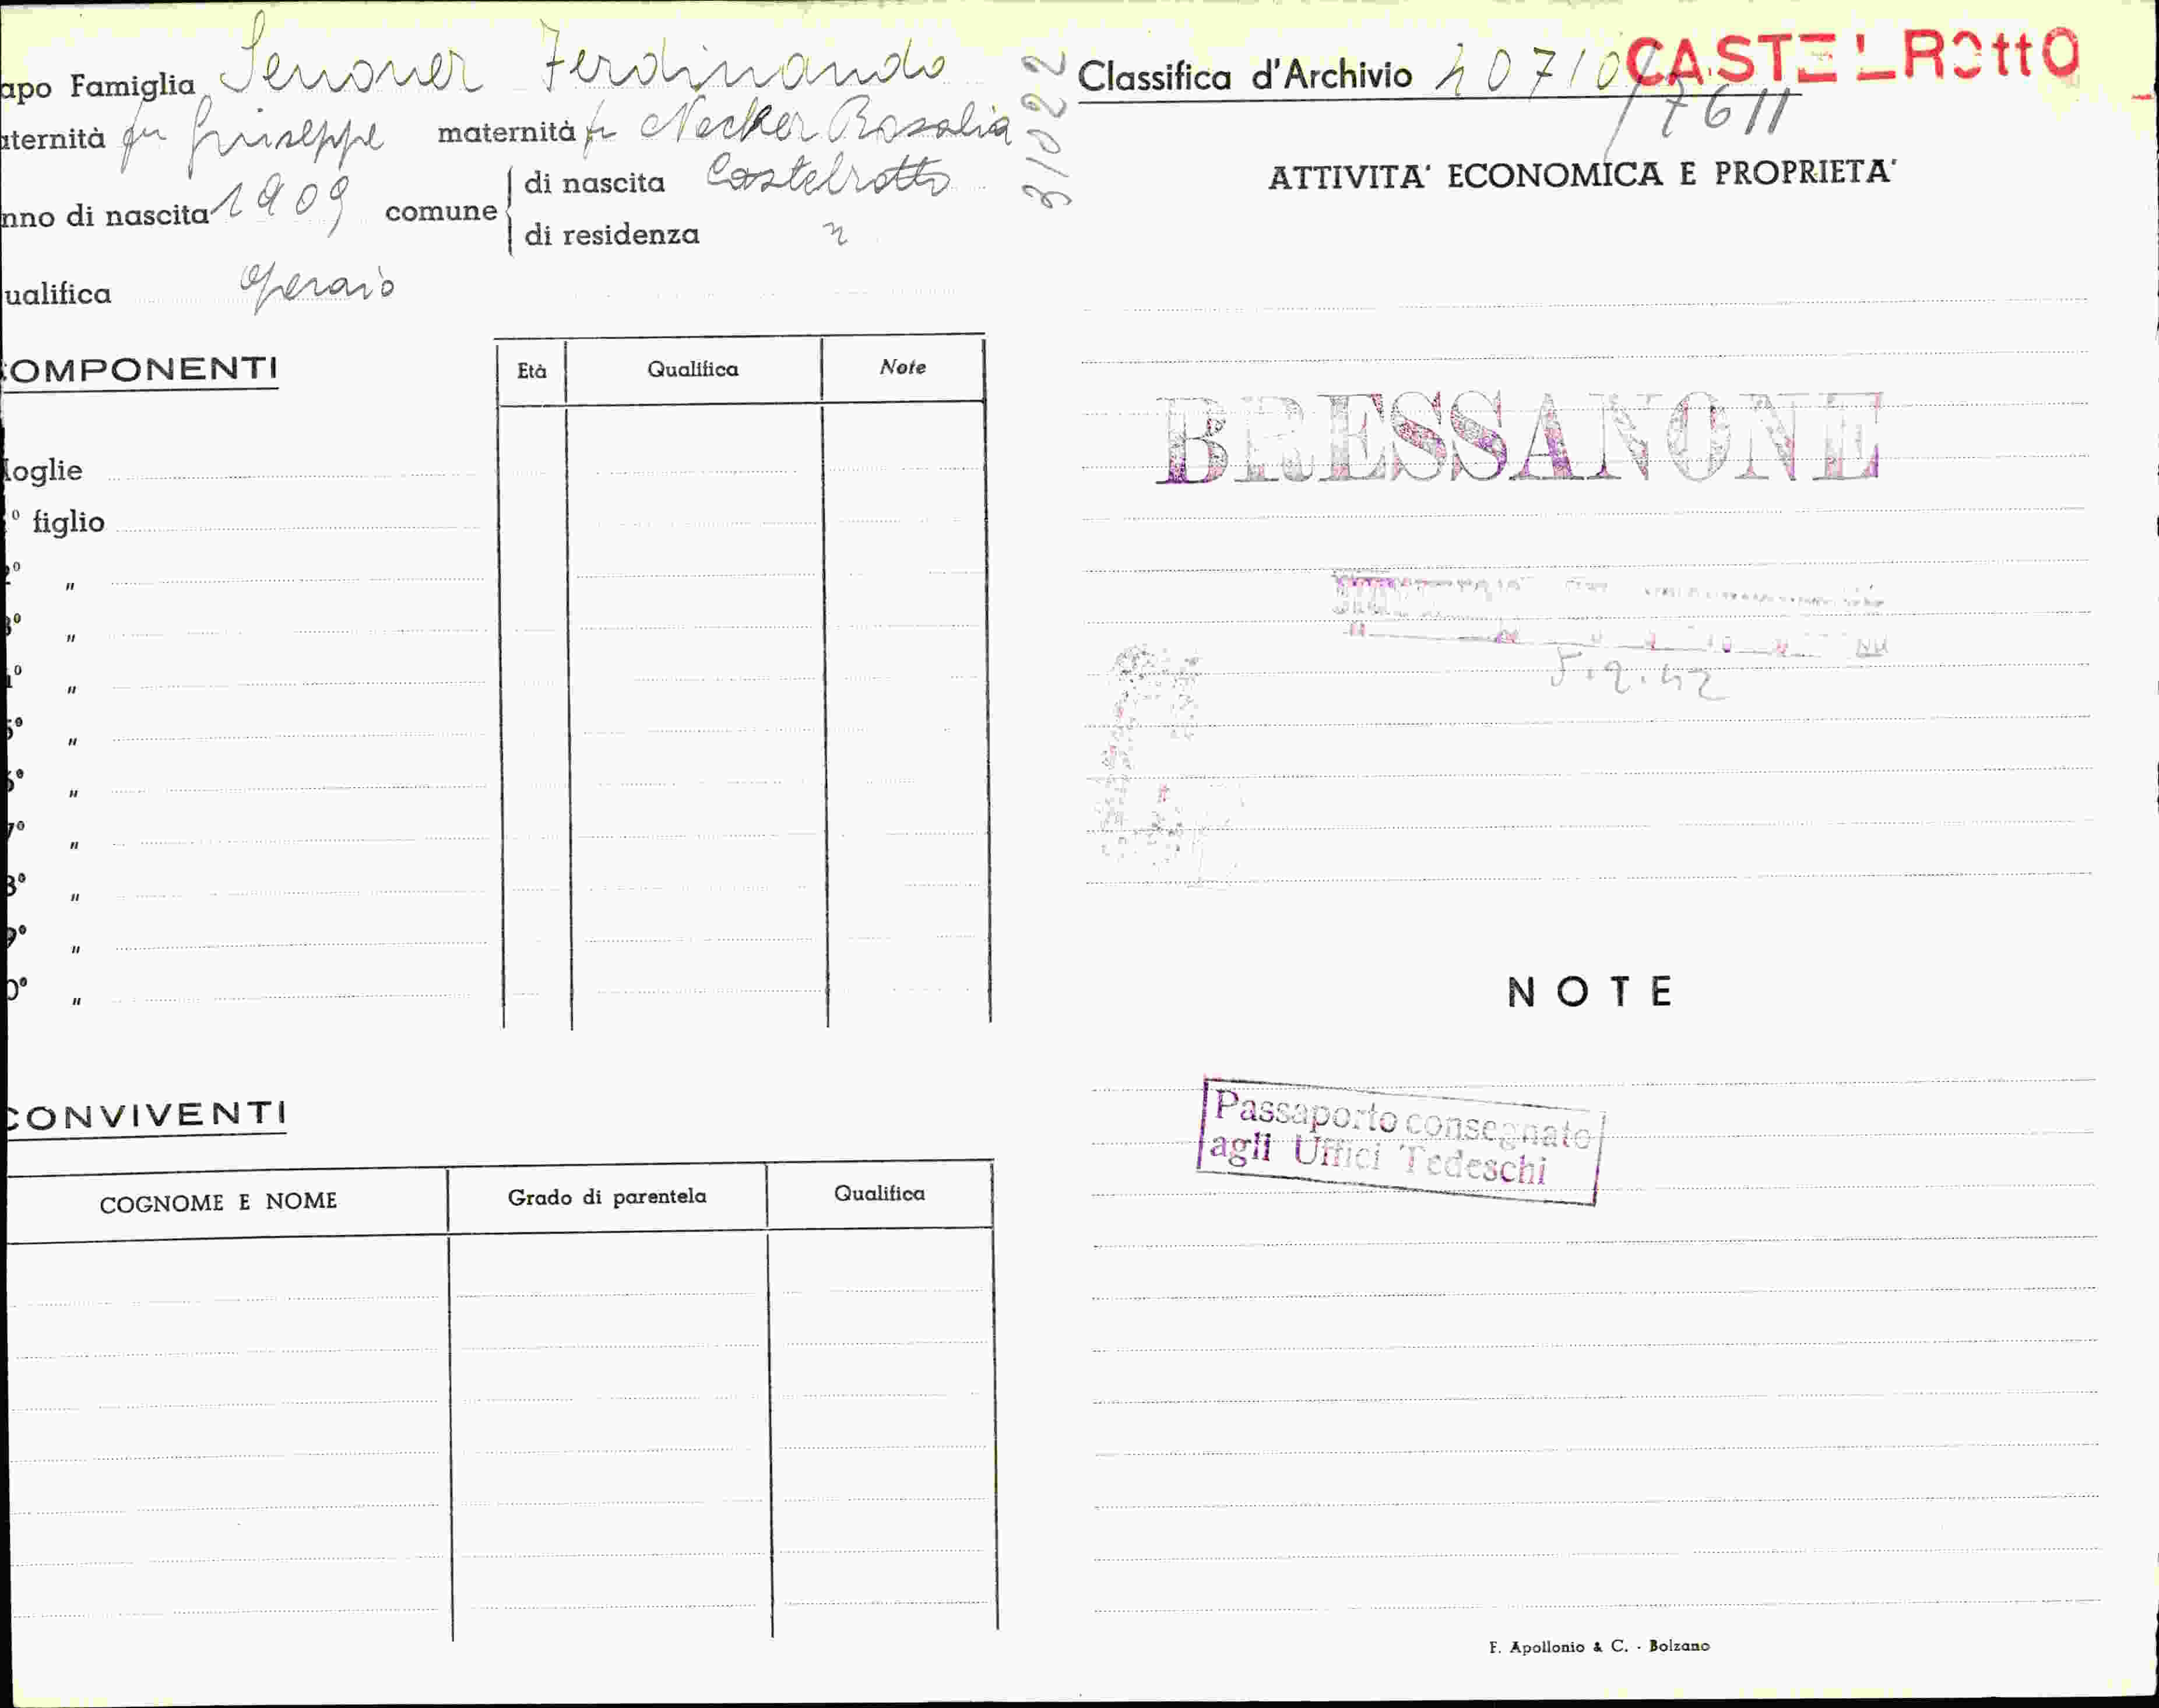 apo Famiglia Senoner Ferdinando
aternità fu Giuseppe maternità fu Necker Rosalia
nno di nascita 1909 comune di nascita Castelrotto
di residenza "
ualifica operaio
31022
OMPONENTI
Età Qualifica Note
oglie
° figlio
2° "
3° "
4° "
5° "
6° "
7° "
8° "
9° "
0° "
CONVIVENTI
COGNOME E NOME Grado di parentela Qualifica
Classifica d'Archivio
CASTELROttO
/7611
ATTIVITA' ECONOMICA E PROPRIETA'
BRESSANONE
NOTE
Passaporto consegnato
agli Uffici Tedeschi
F. Apollonio & C. - Bolzano